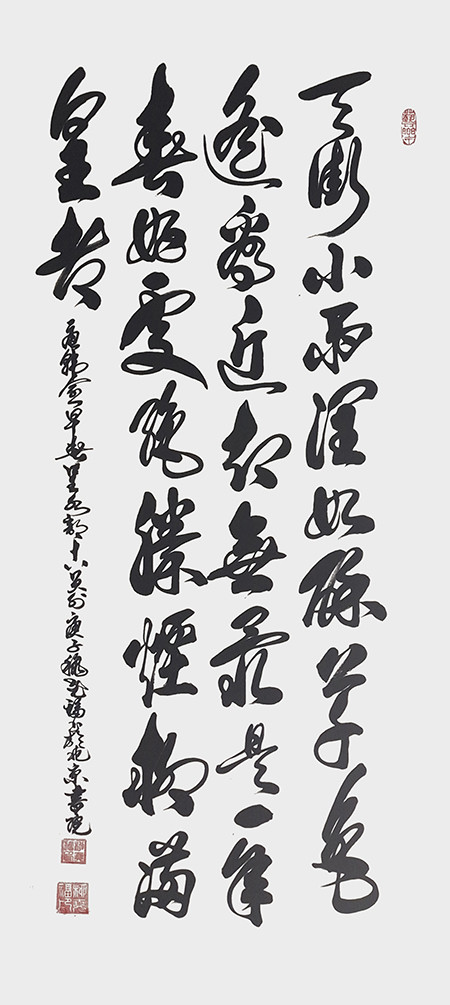 天街小雨潤如酥草色
遙看近却無最是一年
春好處絕勝煙柳滿
皇都
唐韓愈早春呈水部十八員外庚子秋